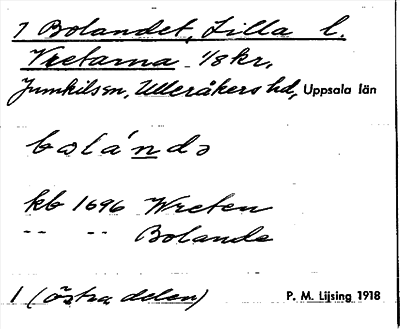 7 Bolandet, Lilla l.
Vretarna 1/8 kr.
Jumkils sn, Ulleråkers hd, Uppsala län
bolándə
kb 1696 Wreten
-- -- Bolande
1 (östra delen) P. M. Lijsing 1918